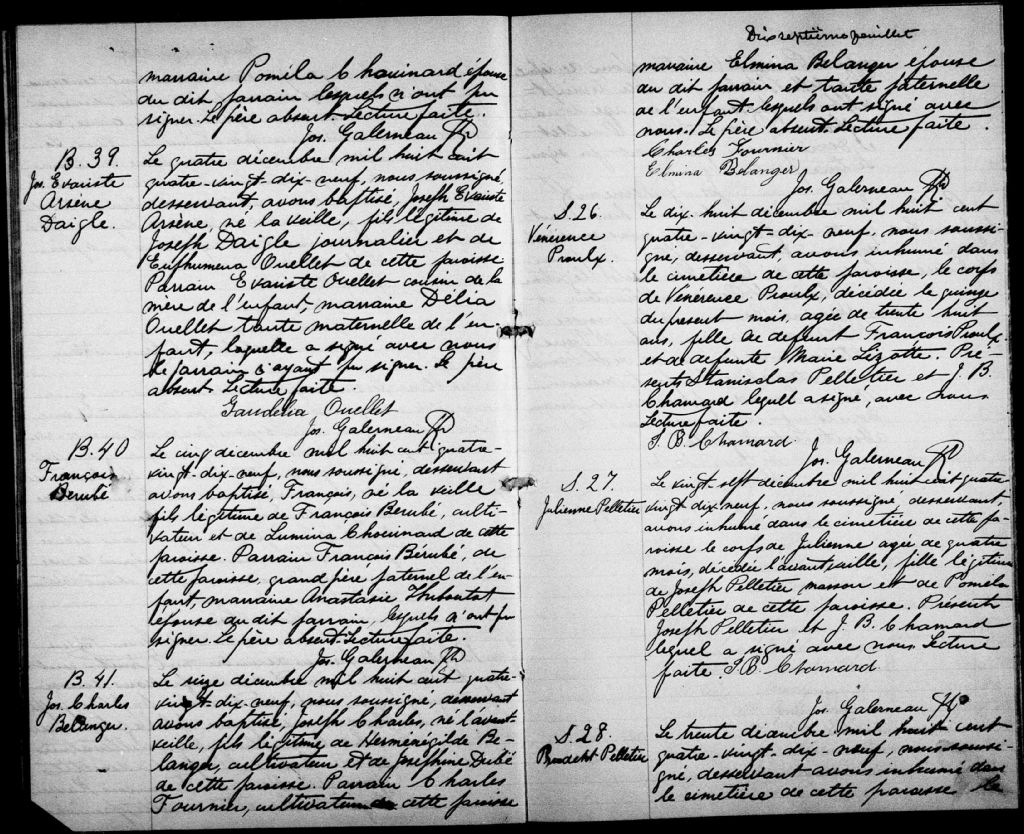 marraine Poméla Chouinard épouse
du dit parrain lesquels n'ont pu
signer. Le père absent. Lecture faite.
Jos. Galerneau Ptr
B. 39.
Jos. Evariste
Arsène
Daigle.
Le quatre décembre mil huit cent
quatre-vingt-dix-neuf, nous soussigné
desservant, avons baptisé, Joseph Evariste
Arsène, né la veille, fils légitime de
Joseph Daigle journalier et de
Euphumena Ouellet de cette paroisse
Parrain Evariste Ouellet cousin de la
mère de l'enfant, marraine Délia
Ouellet tante maternelle de l'en-
fant, laquelle a signé avec nous
le parrain n'ayant pu signer. Le père
absent Lecture faite.
Gaudelia Ouellet
Jos. Galerneau Ptr
B. 40
François
Berubé
Le cinq décembre mil huit cent quatre-
vingt-dix-neuf, nous soussigné, desservant
avons baptisé, François, né la veille
fils légitime de François Berubé, culti-
vateur et de Lumina Chouinard de cette
paroisse. Parrain François Bérubé, de
cette paroisse, grand père paternel de l'en-
fant, marraine Anastasie
épouse du dit parrain, lesquels n'ont pu
signer. Le père absent. Lecture faite.
Jos. Galerneau Ptr
B. 41.
Jos. Charles
Belanger.
Le seize décembre mil huit cent quatre-
vingt-dix-neuf, nous soussigné, desservant
avons baptisé, Joseph Charles, né l'avant
veille, fils légitime de Herménégilde Be-
langer, cultivateur et de Joséphine Dubé
de cette paroisse. Parrain Charles
Fournier, cultivateur de cette paroisse
Dix septième feuillet
marraine Elmina Belanger épouse
du dit parrain et tante paternelle
de l'enfant lesquels ont signé avec
nous. Le père absent. Lecture faite.
Charles Fournier
Elmina Belanger
Jos. Galerneau Ptr
S. 26
Vénérence
Proulx.
Le dix huit décembre mil huit cent
quatre-vingt-dix-neuf, nous soussi-
gné, desservant, avons inhumé dans
le cimetière de cette paroisse, le corps
de Vénérence Proulx, décédée le quinze
du present mois, agée de trente huit
ans, fille de defunt François Proulx
et de defunte Marie Lizotte. Pré-
sents Stanislas Pelletier et J. B.
Chamard lequel a signé, avec nous
Lecture faite.
J. B. Chamard
Jos. Galerneau Ptr
S. 27.
Julienne Pelletier
Le vingt sept décembre mil huit cent quatre
vingt dix neuf, nous soussigné, desservant
avons inhumé dans le cimetière de cette pa-
roisse le corps de Julienne agée de quatre
mois, décédée l'avant veille, fille légitime
de Joseph Pelletier masson et de Poméla
Pelletier de cette paroisse. Présents
Joseph Pelletier et J. B. Chamard
lequel a signé avec nous Lecture
faite. J. B. Chamard
Jos. Galerneau Ptr
S. 28.
Pelletier
Le trente décembre mil huit cent
quatre-vingt-dix-neuf, nous soussi-
gné, desservant avons inhumé dans
le cimetière de cette paroisse le